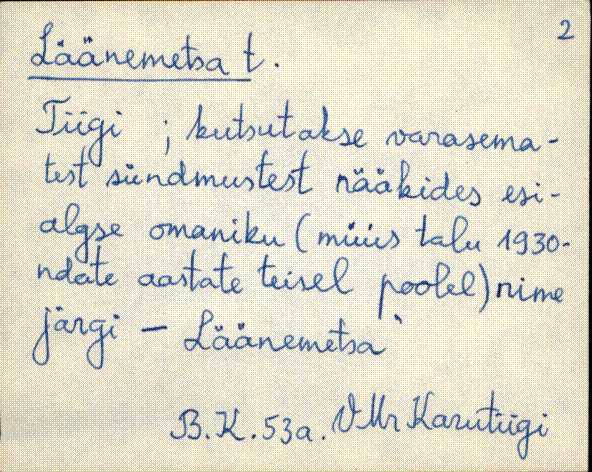 2
Läänemetsa t.
Tiigi ; kutsutakse varasema-
test sündmustest rääkides esi-
algse omaniku (müüs talu 1930-
ndate aastate teisel poolel) nime
järgi - Läänemetsa`
B.K. 53a. VMr Karutiigi